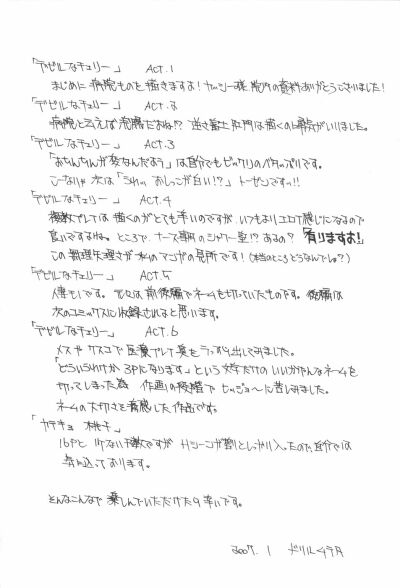 「デビルなチェリー」 ACT.1
まじめに病院ものを描きますよ! ヤッシー様 院内の資料ありがとうございました!
「デビルなチェリー」 ACT.2
病院と云えば浣腸だよね!? 逆さ騎士肛門は描くのに勇気がいりました。
「デビルなチェリー」 ACT.3
「おちんちんが変なんだよう」は自分でもビックリのベタっぷりです。
こーなりゃ次は「うわっ おしっこが白い!?」トーゼンですっ!!
「デビルなチェリー」 ACT.4
複数プレイは描くのがとても辛いのですが、いつもよりエロイ感じになるので
良いですよね。ところで、ナース専用のシャワー室!? あるの? 「有りますよ!」
この無理矢理さが私のマンガの見所です!(本当のところどうなんでしょ?)
「デビルなチェリー」 ACT.5
人妻もいです。元々は前後編でネームを切っていたものです。後編は
次のコミックスに収録されると思います。
「デビルなチェリー」 ACT.6
メスやクスコで医療プレイ臭をうっすら出してみました。
「どういうわけか3Pになります」という文字だけのいいかげんなネームを
切ってしまった為 作画の段階でヒッジョ〜に苦しみました。
ネームの大切さを痛感した作品です。
「カテキョ 桃子」
16Pと少ない枚数ですがHシーンが割としっかり入ったので自分では
気に入っております。
そんなこんなで楽しんでいただけたら幸いです。
2007. 1 ドリルムラタ